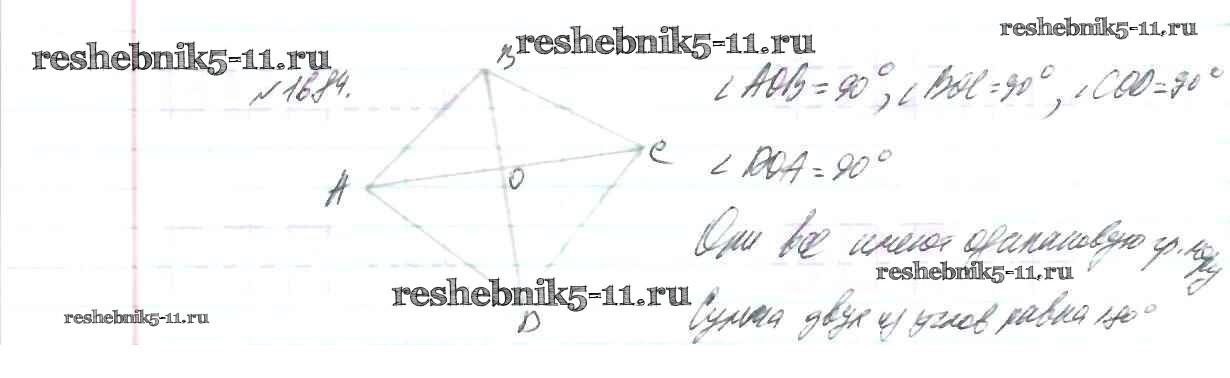 reshebnik5-11.ru
reshebnik5-11.ru
reshebnik5-11.ru
№1684.
B
A
O
C
D
∠AOB=90°, ∠BOC=90°, ∠COD=90°
∠DOA=90°
Они все имеют одинаковую гр. меру
reshebnik5-11.ru
reshebnik5-11.ru
reshebnik5-11.ru
Сумма двух из углов равна 180°